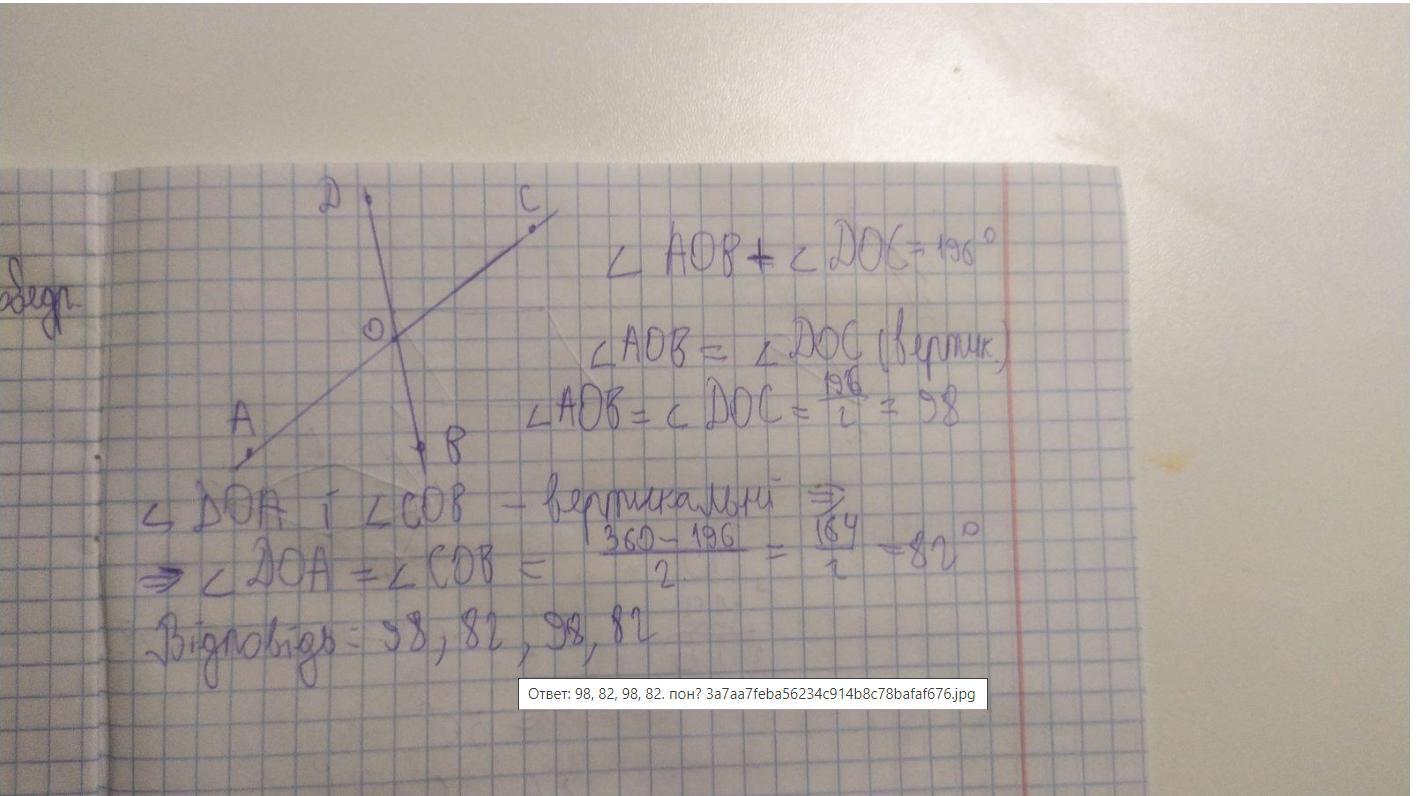 D
C
∠ AOB + ∠ DOC = 196°
O
∠AOB = ∠DOC (вертик.)
A
∠AOB = ∠ DOC = 196/2 = 98
B
∠ DOA і ∠COB – вертикальні ⇒
⇒ ∠DOA = ∠COB = 360-196/2 = 164/2 = 82°
Відповідь: 98, 82, 98, 82
Ответ: 98, 82, 98, 82. пон? 3a7aa7feba56234c914b8c78bafaf676.jpg